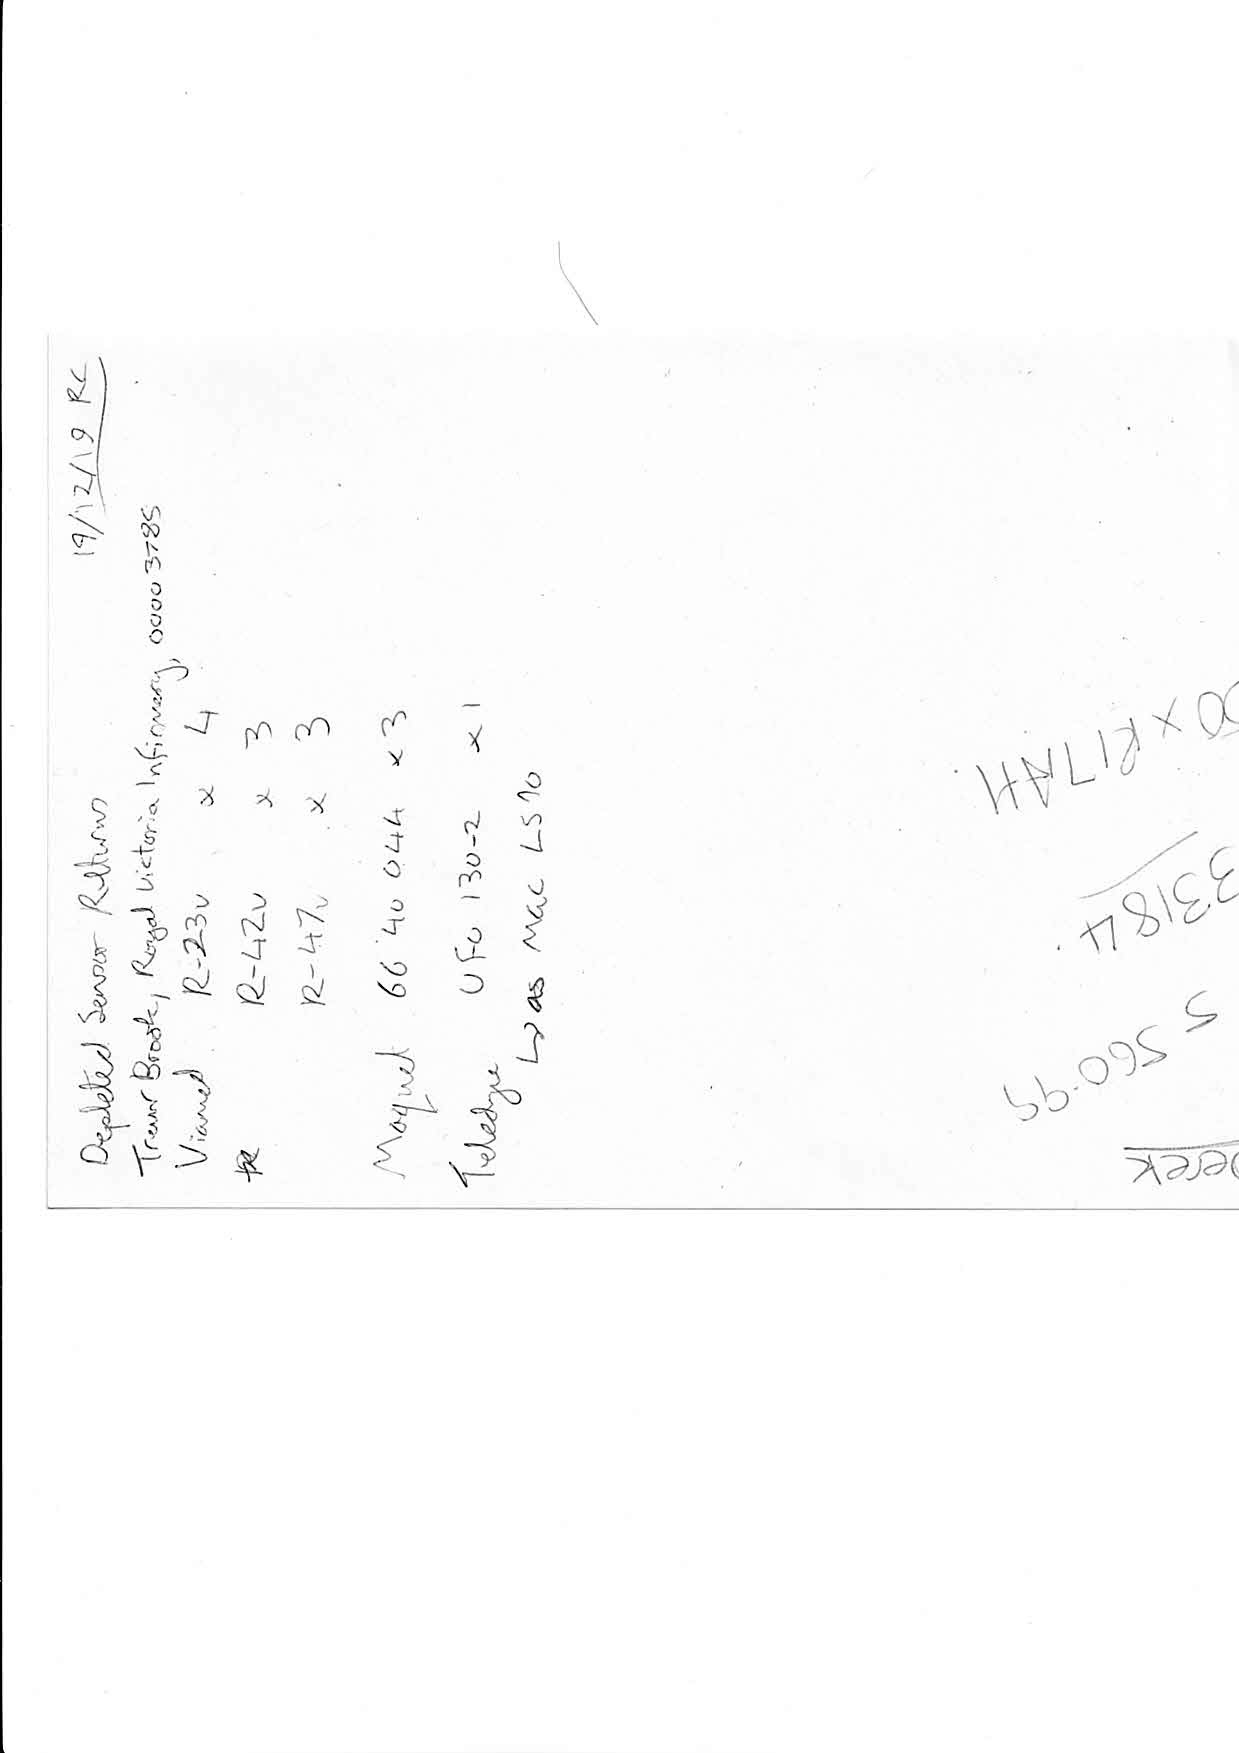 Depleted Sensor Returns 19/12/19 RC
Trevor Brook, Royal Victoria Infirmary, 00003785
Viamed R-23v x 4
R-42v x 3
R-47v x 3
Maquet 66 40 044 x 3
Teledyne UFO 130-2 x 1
was MAC LS70
Derek
S 560.99
33184
50 x R17AH